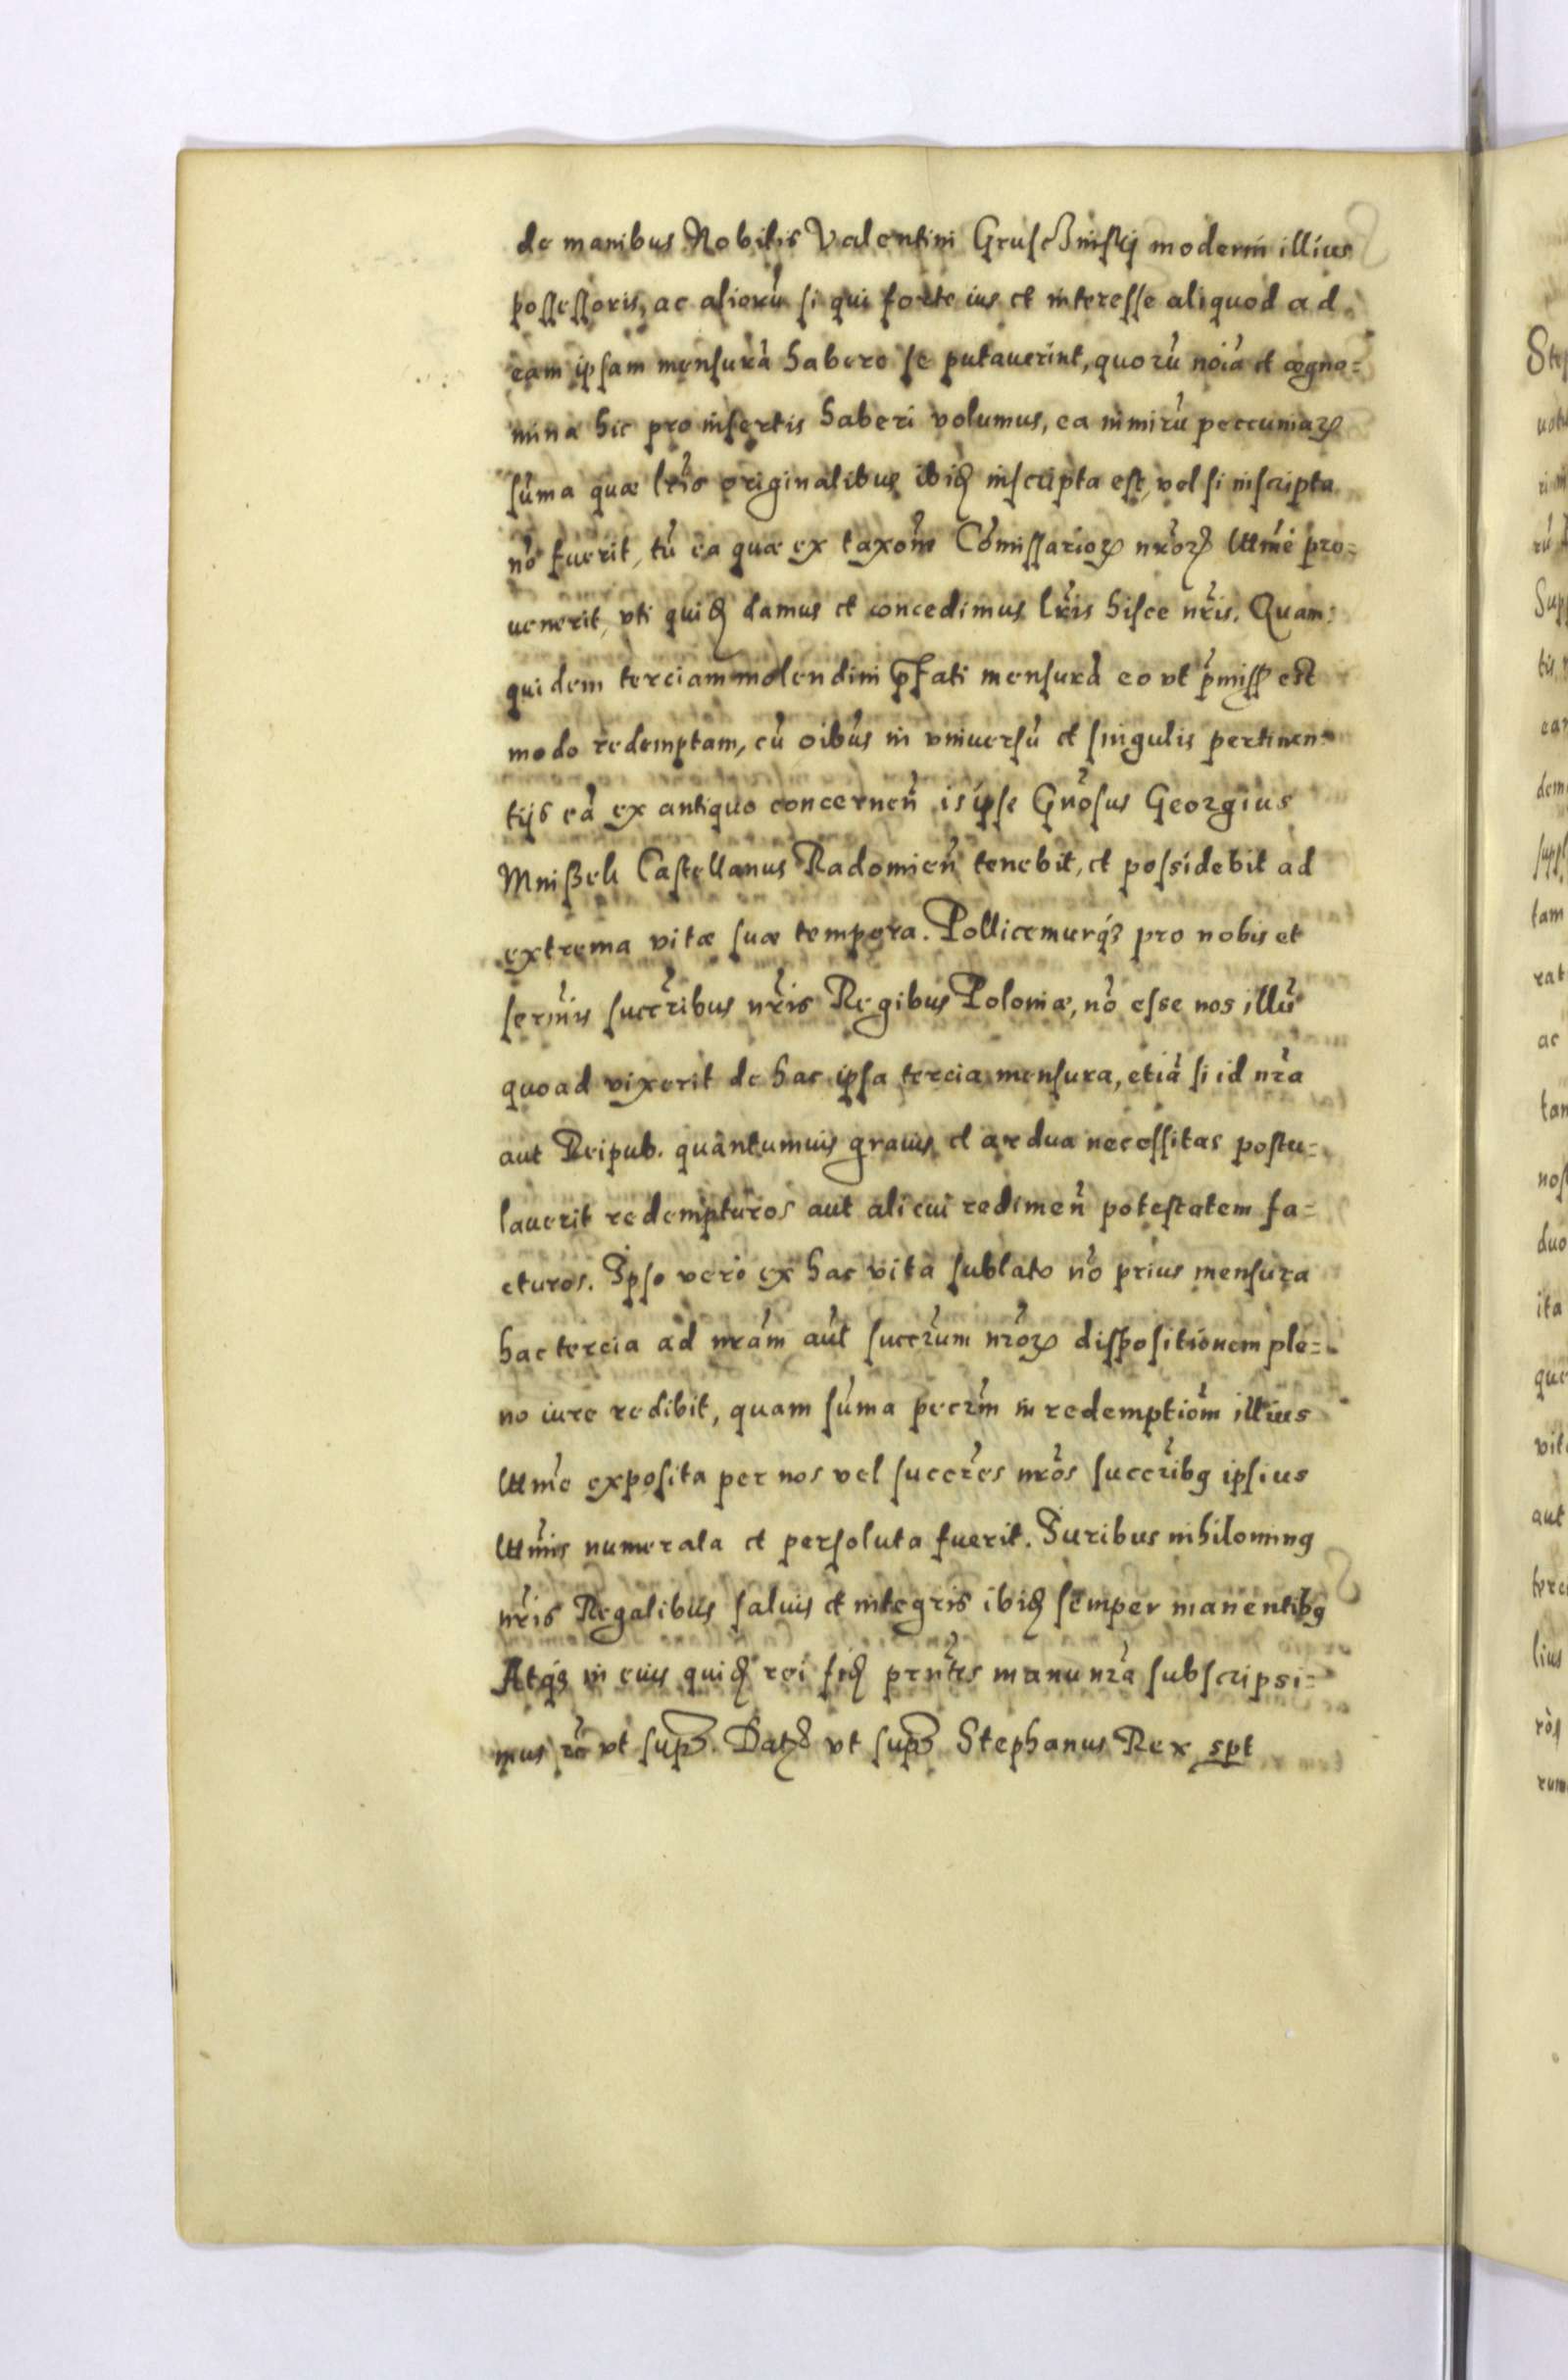 de manibus Nobilis Valentini Gruscʒinskij moderni illius
possessoris, ac aliorũ si qui forte ius et interesse aliquod ad
eam ipsam mensurã habere se putauerint, quorũ noĩa et cogno=
mina hic pro insertis haberi volumus, ea nimirũ peccuniaꝝ
sũma quæ lr̃is originalibus ibiđ inscripta est, vel si inscripta
nõ fuerit, tũ ea quæ ex taxom̃ Cõmissarioꝝ nr̃orꝝ lttm̃e pro=
uenerit, vti quiđ damus et concedimus lr̃is hisce nr̃is. Quam
quidem terciam molendini p̃fati mensurã eo vt p̃miss est
modo redemptam, cũ oĩbus in vniuersũ et singulis pertinen=
tijs eã ex antiquo concerneñ is ipse Gñosus Georgius
Mnißek Castellanus Radomieñ tenebit, et possidebit ad
extrema vitæ suæ tempora. Pollicemurqʒ pro nobis et
serm̃is succr̃ibus nr̃is Regibus Poloniæ, nõ esse nos illũ
quoad vixerit de hac ipsa tercia mensura, etiã si id nr̃a
aut Reipub. quantumuis grauis et ardua necessitas postu=
lauerit redempturos aut alicui redimeñ potestatem fa=
cturos. Ipso vero ex hac vita sublato nõ prius mensura
hac tercia ad nr̃am aut succr̃um nr̃oꝝ dispositionem ple=
no iure redibit, quam sũma pecr̃m in redemptiom̃ illius
lttm̃e exposita per nos vel succr̃es nr̃os succr̃ibꝯ ipsius
lttm̃is numerata et persoluta fuerit. Iuribus nihilominꝯ
nr̃is Regalibus saluis et integris ibiđ semper manentibꝯ
Atqʒ in cuius quiđ rei fiđ prñtes manu nr̃a subscripsi=
mus rc̃ vt supʒ. Datꝝ vt supʒ Stephanus Rex spt